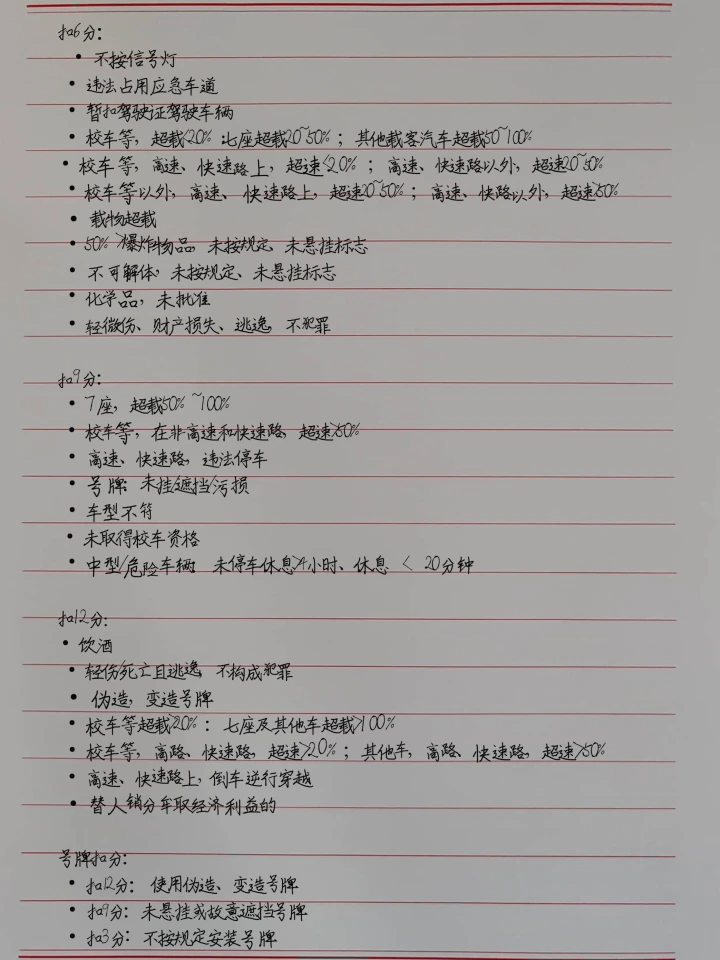 扣6分：
• 不按信号灯
• 违法占用应急车道
• 暂扣驾驶证驾驶车辆
• 校车等，超载<20%；七座超载20~50%；其他载客汽车超载50~100%
• 校车等，高速、快速路上，超速<20%；高速、快速路以外，超速20~50%
• 校车等以外，高速、快速路上，超速20~50%；高速、快路以外，超速>50%
• 载物超载
• 50%>爆炸物品，未按规定、未悬挂标志
• 不可解体，未按规定、未悬挂标志
• 化学品，未批准
• 轻微伤、财产损失、逃逸，不犯罪
扣9分：
• 7座，超载50%~100%
• 校车等，在非高速和快速路，超速>50%
• 高速、快速路，违法停车
• 号牌：未挂/遮挡/污损
• 车型不符
• 未取得校车资格
• 中型/危险车辆，未停车休息>4小时、休息 < 20分钟
扣12分：
• 饮酒
• 轻伤/死亡且逃逸，不构成犯罪
• 伪造，变造号牌
• 校车等超载>20%：七座及其他车超载>100%
• 校车等，高路、快速路，超速>20%；其他车，高路、快速路，超速>50%
• 高速、快速路上，倒车逆行穿越
• 替人销分牟取经济利益的
号牌扣分：
• 扣12分：使用伪造、变造号牌
• 扣9分：未悬挂或故意遮挡号牌
• 扣3分：不按规定安装号牌